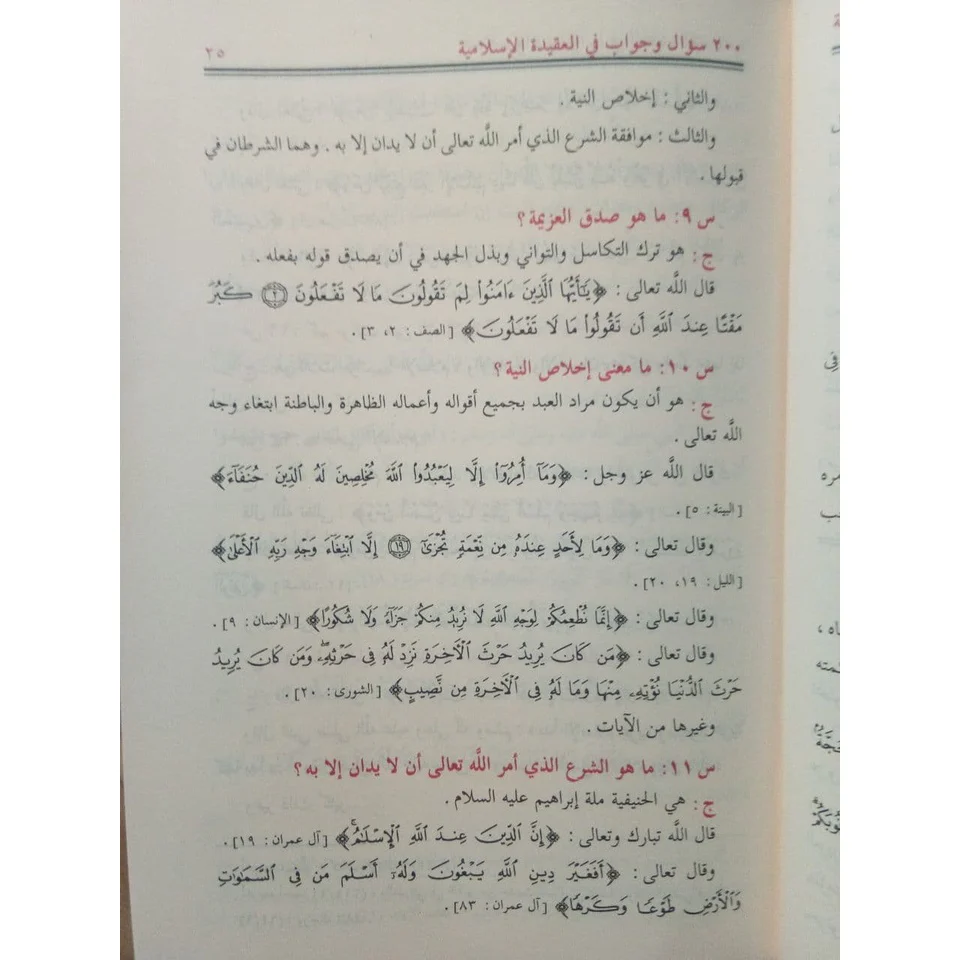 ٢٠٠ سؤال وجواب في العقيدة الإسلامية ٢٥
والثاني : إخلاص النية .
والثالث : موافقة الشرع الذي أمر اللَّه تعالى أن لا يدان إلا به . وهما الشرطان في
قبولها .
س ٩: ما هو صدق العزيمة؟
ج : هو ترك التكاسل والتواني وبذل الجهد في أن يصدق قوله بفعله .
قال اللَّه تعالى : ﴿يَٰٓأَيُّهَا ٱلَّذِينَ ءَامَنُوا۟ لِمَ تَقُولُونَ مَا لَا تَفْعَلُونَ ۝٢ كَبُرَ
مَقْتًا عِندَ ٱللَّهِ أَن تَقُولُوا۟ مَا لَا تَفْعَلُونَ﴾ [الصف : ٢، ٣] .
س ١٠: ما معنى إخلاص النية؟
ج : هو أن يكون مراد العبد بجميع أقواله وأعماله الظاهرة والباطنة ابتغاء وجه
اللَّه تعالى .
قال اللَّه عز وجل : ﴿وَمَآ أُمِرُوٓا۟ إِلَّا لِيَعْبُدُوا۟ ٱللَّهَ مُخْلِصِينَ لَهُ ٱلدِّينَ حُنَفَآءَ﴾
[البينة : ٥] .
وقال تعالى : ﴿وَمَا لِأَحَدٍ عِندَهُۥ مِن نِّعْمَةٍ تُجْزَىٰٓ ۝١٩ إِلَّا ٱبْتِغَآءَ وَجْهِ رَبِّهِ ٱلْأَعْلَىٰ﴾
[الليل : ١٩، ٢٠] .
وقال تعالى : ﴿إِنَّمَا نُطْعِمُكُمْ لِوَجْهِ ٱللَّهِ لَا نُرِيدُ مِنكُمْ جَزَآءً وَلَا شُكُورًا﴾ [الإنسان : ٩] .
وقال تعالى : ﴿مَن كَانَ يُرِيدُ حَرْثَ ٱلْأَخِرَةِ نَزِدْ لَهُۥ فِى حَرْثِهِۦ وَمَن كَانَ يُرِيدُ
حَرْثَ ٱلدُّنْيَا نُؤْتِهِۦ مِنْهَا وَمَا لَهُۥ فِى ٱلْأَخِرَةِ مِن نَّصِيبٍ﴾ [الشورى : ٢٠] .
وغيرها من الآيات .
س ١١: ما هو الشرع الذي أمر اللَّه تعالى أن لا يدان إلا به؟
ج : هي الحنيفية ملة إبراهيم عليه السلام .
قال اللَّه تبارك وتعالى : ﴿إِنَّ ٱلدِّينَ عِندَ ٱللَّهِ ٱلْإِسْلَٰمُ﴾ [آل عمران : ١٩] .
وقال تعالى : ﴿أَفَغَيْرَ دِينِ ٱللَّهِ يَبْغُونَ وَلَهُۥٓ أَسْلَمَ مَن فِى ٱلسَّمَٰوَٰتِ
وَٱلْأَرْضِ طَوْعًا وَكَرْهًا﴾ [آل عمران : ٨٣] .